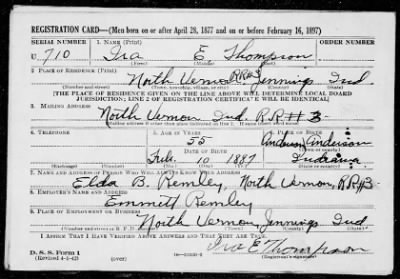 REGISTRATION CARD—(Men born on or after April 28, 1877 and on or before February 16, 1897)
SERIAL NUMBER 1. NAME (Print) ORDER NUMBER
U 710 Ira E. Thompson
(First) (Middle) (Last)
2. PLACE OF RESIDENCE (Print)
North Vernon, R.R.#3 Jennings Ind
(Number and street) (Town, township, village, or city) (County) (State)
[THE PLACE OF RESIDENCE GIVEN ON THE LINE ABOVE WILL DETERMINE LOCAL BOARD
JURISDICTION; LINE 2 OF REGISTRATION CERTIFICATE WILL BE IDENTICAL]
3. MAILING ADDRESS
North Vernon Ind. R.R.#3-
4. TELEPHONE 5. AGE IN YEARS 6. PLACE OF BIRTH
55 Anderson
DATE OF BIRTH
Feb. 10 1887 Indiana
(Exchange) (Number) (Mo.) (Day) (Yr.) (State or country)
7. NAME AND ADDRESS OF PERSON WHO WILL ALWAYS KNOW YOUR ADDRESS
Elda B. Remley, North Vernon, R.R.#3-
8. EMPLOYER'S NAME AND ADDRESS
Emmett Remley
9. PLACE OF EMPLOYMENT OR BUSINESS
North Vernon, Jennings Ind
I AFFIRM THAT I HAVE VERIFIED ABOVE ANSWERS AND THAT THEY ARE TRUE.
D. S. S. Form 1
(Revised 4-1-42) (over)
Ira E Thompson
(Registrant's signature)